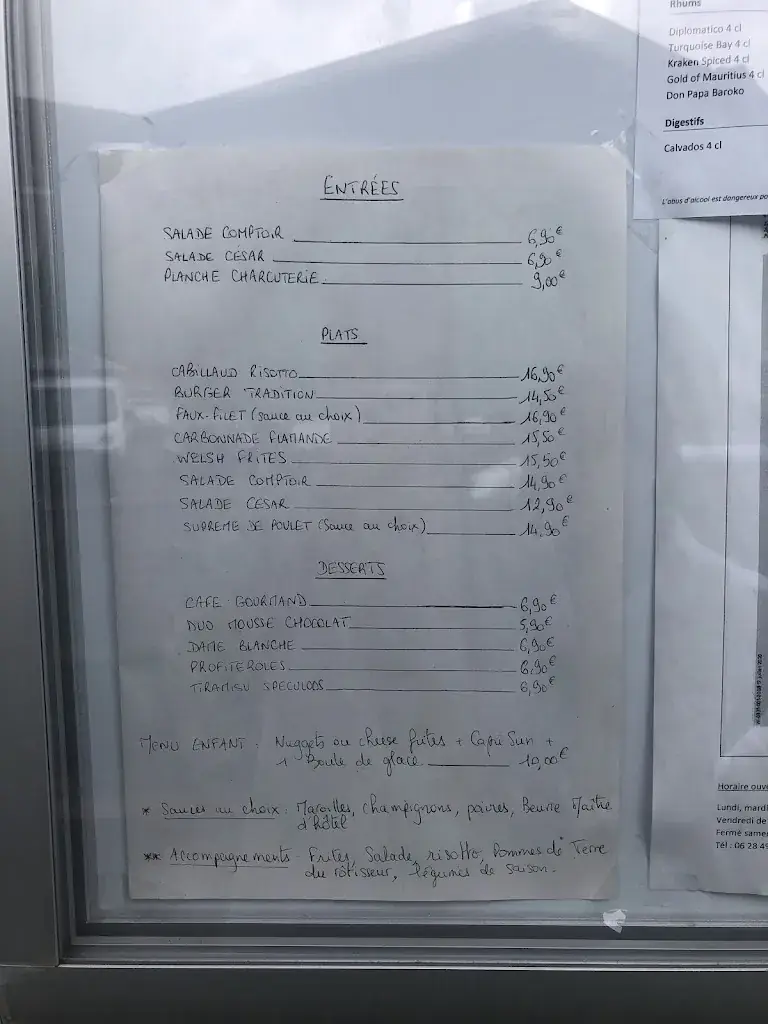 ENTRÉES
SALADE COMPTOIR 6,90€
SALADE CÉSAR 6,90€
PLANCHE CHARCUTERIE 9,00€
PLATS
CABILLAUD RISOTTO 16,90€
BURGER TRADITION 14,50€
FAUX-FILET (sauce au choix) 16,90€
CARBONNADE FLAMANDE 15,50€
WELSH FRITES 15,50€
SALADE COMPTOIR 14,90€
SALADE CESAR 12,90€
SUPREME DE POULET (Sauce au choix) 14,90€
DESSERTS
CAFE GOURMAND 6,90€
DUO MOUSSE CHOCOLAT 5,90€
DAME BLANCHE 6,90€
PROFITEROLES 6,90€
TIRAMISU SPECULOOS 6,90€
MENU ENFANT : Nuggets ou cheese frites + Capri Sun +
1 Boule de glace 10,00€
* Sauces au choix : Maroilles, champignons, poivres, Beurre Maître
d'hôtel
** Accompagnements - Frites, Salade, risotto, Pommes de Terre
du rôtisseur, légumes de saison.
Rhums
Diplomatico 4 cl
Turquoise Bay 4 cl
Kraken Spiced 4 cl
Gold of Mauritius 4 cl
Don Papa Baroko
Digestifs
Calvados 4 cl
L'abus d'alcool est dangereux po
Horaire ouv
Lundi, mardi
Vendredi de
Fermé same
Tél : 06 28 49